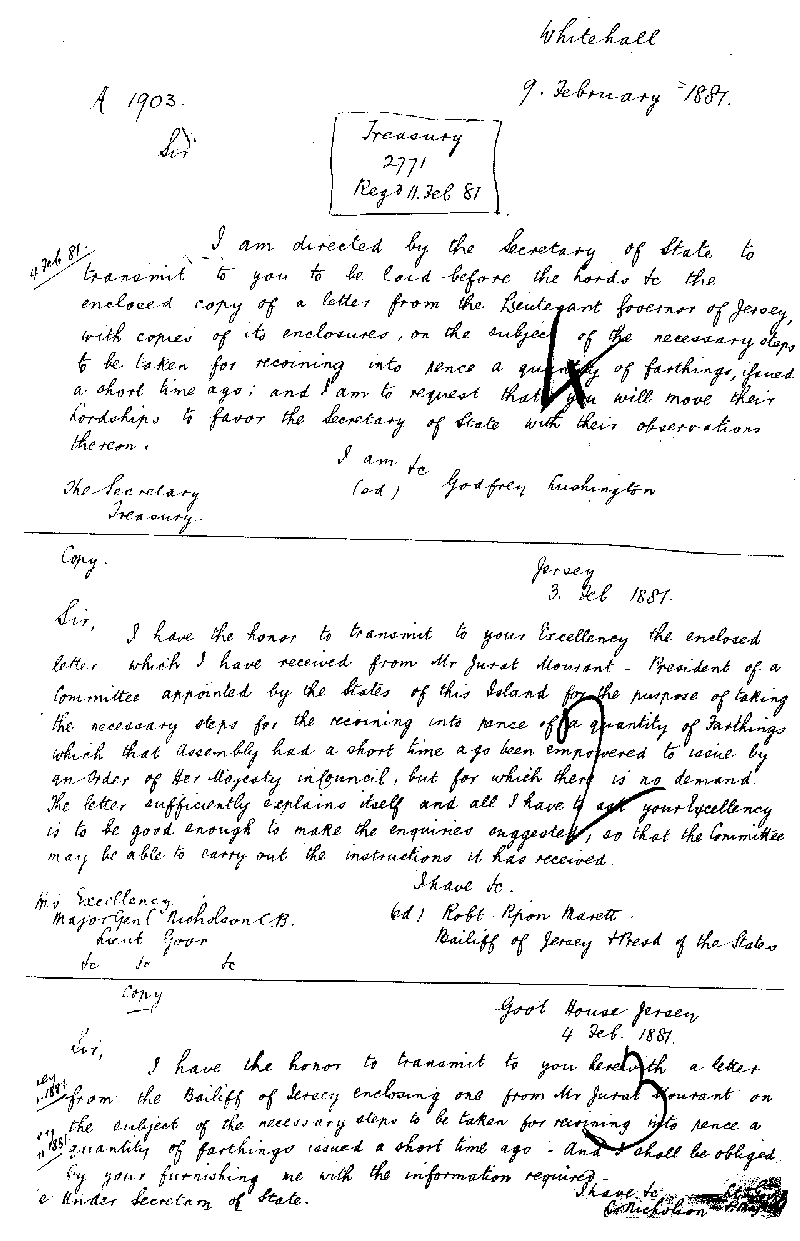 Whitehall
9. February 1881.
A 1903.
Sir
Treasury
2771
Regd 11. Feb 81
4 Feb 81.
I am directed by the Secretary of State to
transmit to you to be laid before the Lords &c the
enclosed copy of a letter from the Lieutenant Governor of Jersey,
with copies of its enclosures, on the subject of the necessary steps
to be taken for recoining into pence a quantity of farthings, issued
a short time ago; and I am to request that you will move their
Lordships to favor the Secretary of State with their observations
thereon.
I am &c
(sd) Godfrey Lushington
The Secretary
Treasury.
4
Copy.
Jersey
3. Feb 1881.
Sir,
I have the honor to transmit to your Excellency the enclosed
letter which I have received from Mr Jurat Mourant - President of a
Committee appointed by the States of this Island for the purpose of taking
the necessary steps for the recoining into pence of a quantity of Farthings
which that Assembly had a short time ago been empowered to issue by
an Order of Her Majesty in Council, but for which there is no demand.
The letter sufficiently explains itself and all I have to ask your Excellency
is to be good enough to make the enquiries suggested, so that the Committee
may be able to carry out the instructions it has received.
I have &c.
His Excellency
Major Genl Nicholson C.B.
Lieut Govr
&c &c &c
(sd) Robt Pipon Marett
Bailiff of Jersey & Presd of the States
Copy
Govt House Jersey
4 Feb. 1881.
Sir,
I have the honor to transmit to you herewith a letter
from the Bailiff of Jersey enclosing one from Mr Jurat Mourant on
the subject of the necessary steps to be taken for recoining into pence a
quantity of farthings issued a short time ago - And I shall be obliged
by your furnishing me with the information required.
3
1881
1881
I have &c
Nicholson
e Under Secretary of State.